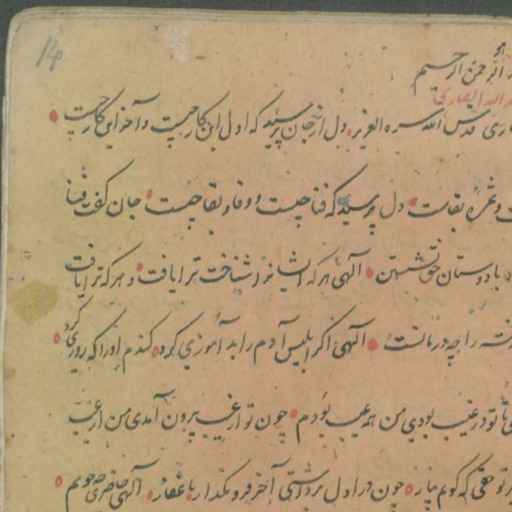 ۱۴
الرحمن الرحیم
الله انصاری
قدس الله سره العزیز دل از جان پرسید که اول این کار چیست و آخر این کار چیست
و ثمرهٔ بقاست دل پرسید که فنا چیست و وفا و بقا چیست جان گفت فنا
با دوستان حق نشستن الهی هر که ایشانرا شناخت ترا یافت و هر که ترا یافت
را چه درمانست الهی اگر ابلیس آدم را بد آموزی کرد گندم او را که روزی کرد
تا تو در غیب بودی من همه عیب بودم چون تو از غیب بیرون آمدی من از عیب
تو حقی که گویم بیار چون در اول برداشتی آخر فرو مگذار یا غفار الهی حاضری چه جویم